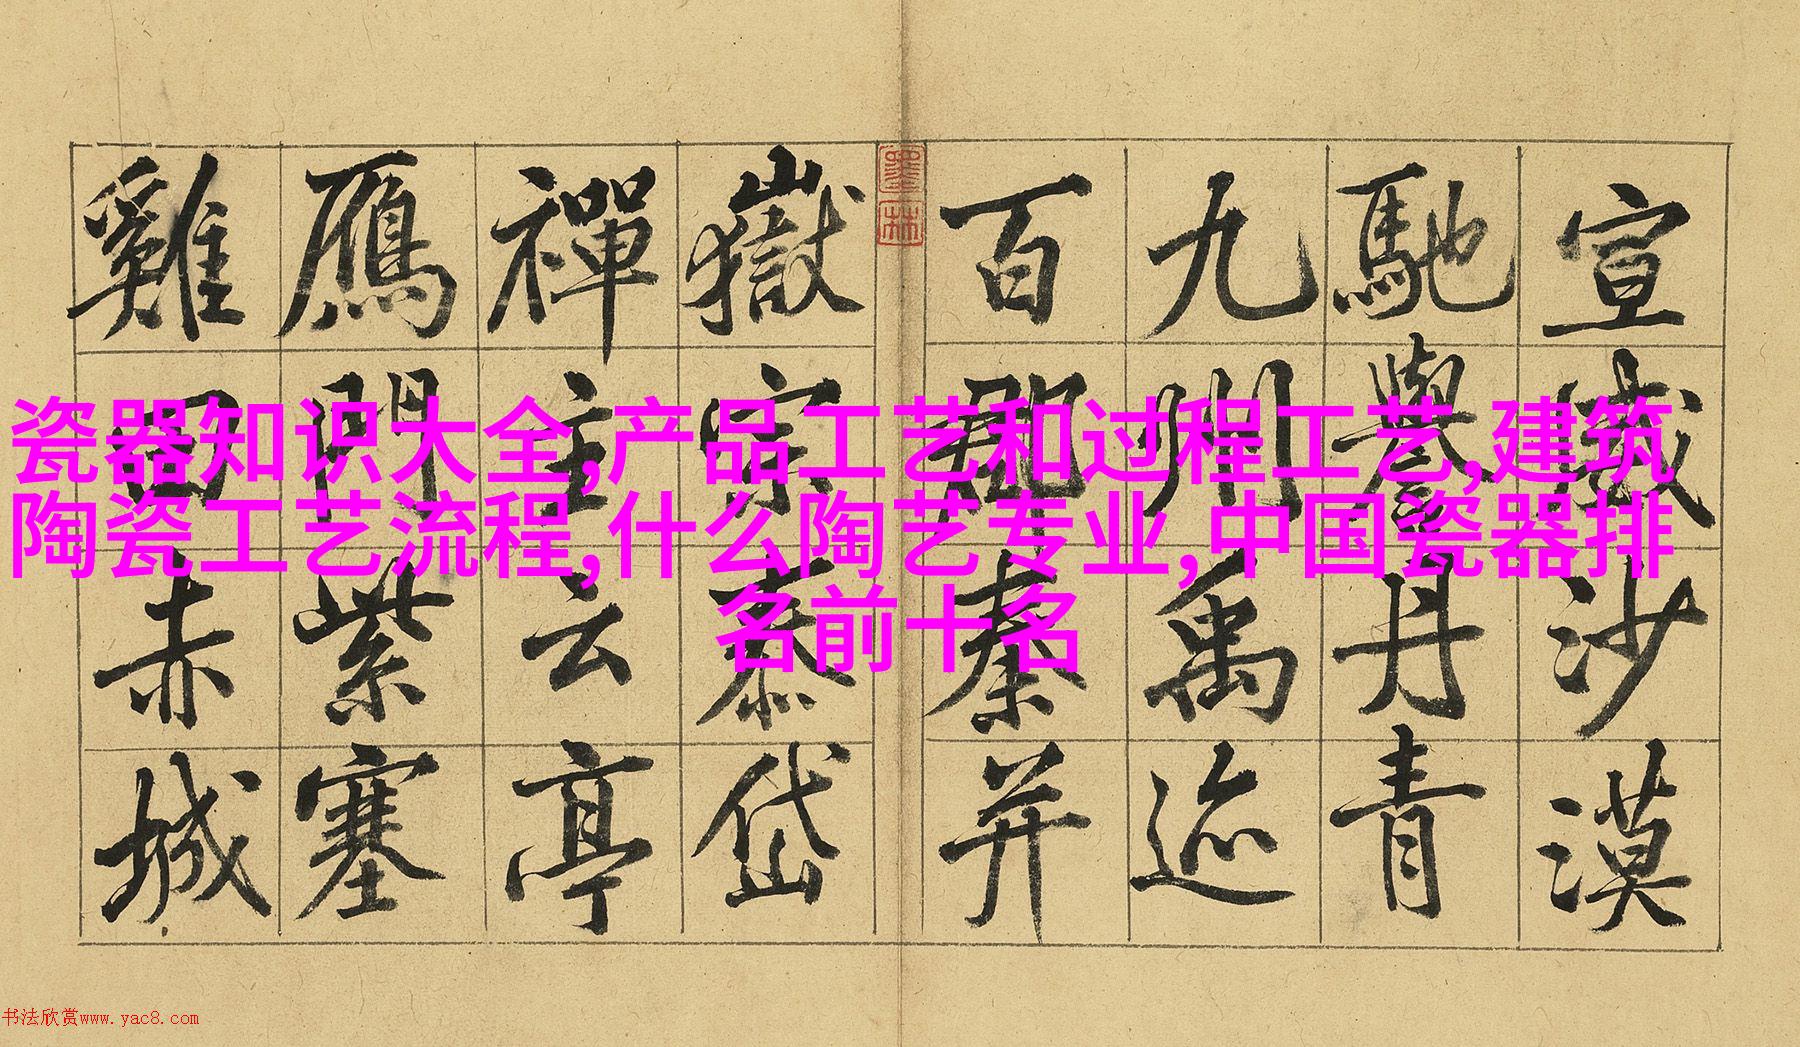 宣威沙漠
馳譽丹青
九州禹迹
百郡秦并
嶽宗泰岱
禪主云亭
鴈門紫塞
雞田赤城
墨林
瓷器知识大全,产品工艺和过程工艺,建筑
陶瓷工艺流程,什么陶艺专业,中国瓷器排
名前十名
书法欣赏www.yac8.com